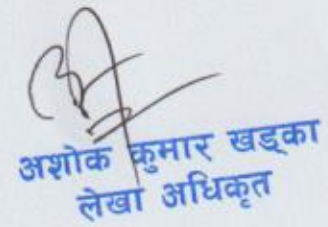 अशोक कुमार खड्का
लेखा अधिकृत